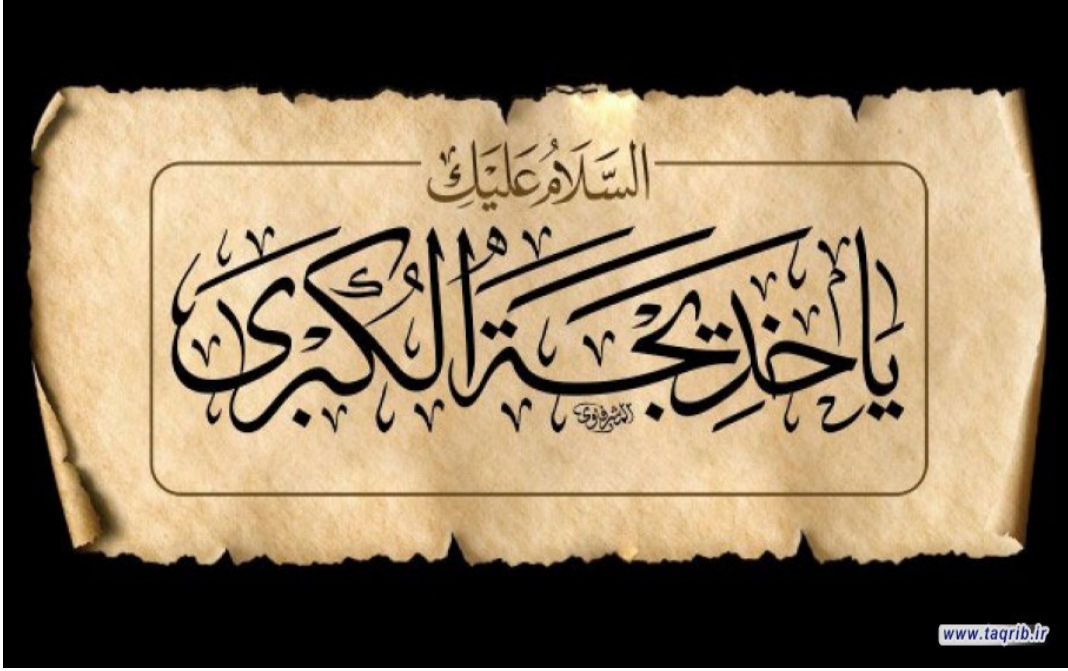 السَّلَامُ عَلَيْكِ
يَا خَدِيجَةُ الْكُبْرَى
المشرفاوي
www.taqrib.ir